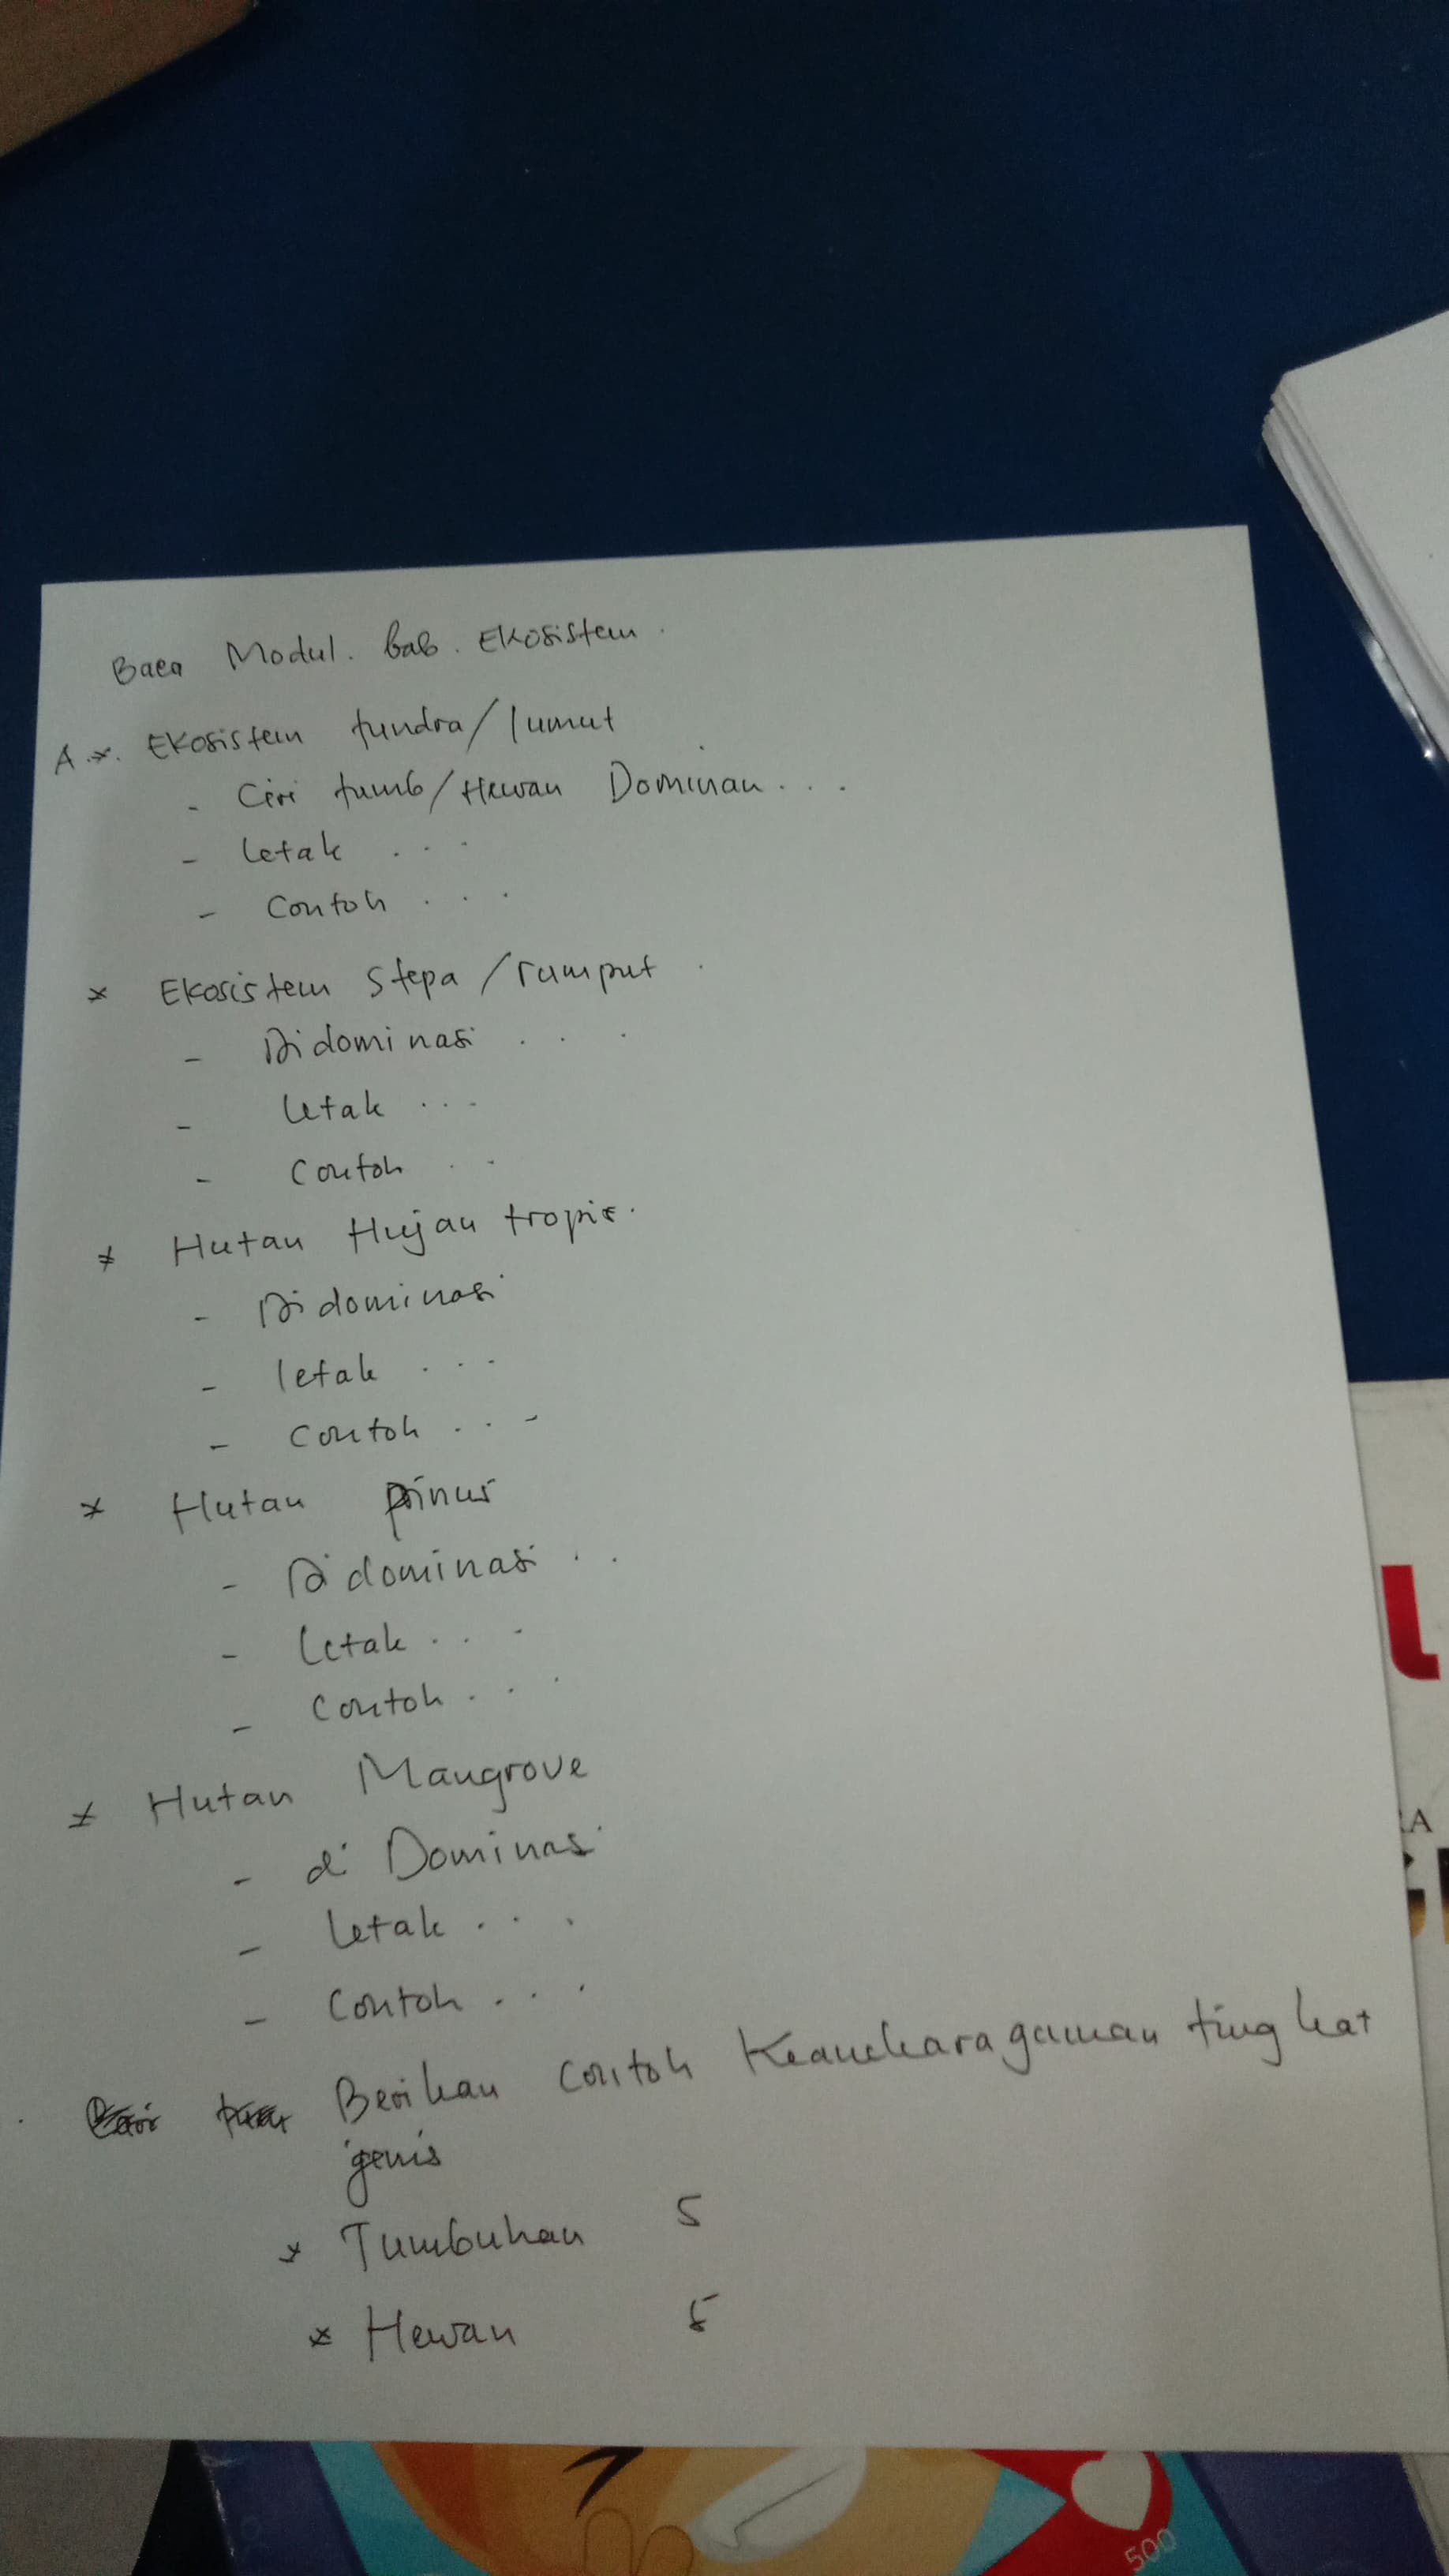 Baca Modul. bab. Ekosistem.
A. *. Ekosistem tundra/lumut
- Ciri tumb/Hewan Dominan. . .
- letak . . .
- Contoh . . .
* Ekosistem Stepa/rumput .
- Didominasi . . .
- letak . . .
- Contoh . .
* Hutan Hujan tropis.
- Didominasi
- letak . . .
- Contoh . . -
* Hutan pinus
- Didominasi . .
- letak . . .
- Contoh . . .
* Hutan Mangrove
- di Dominasi
- letak . . .
- Contoh . . .
Berikan contoh Keanekaragaman tingkat
jenis
* Tumbuhan 5
* Hewan 5
500